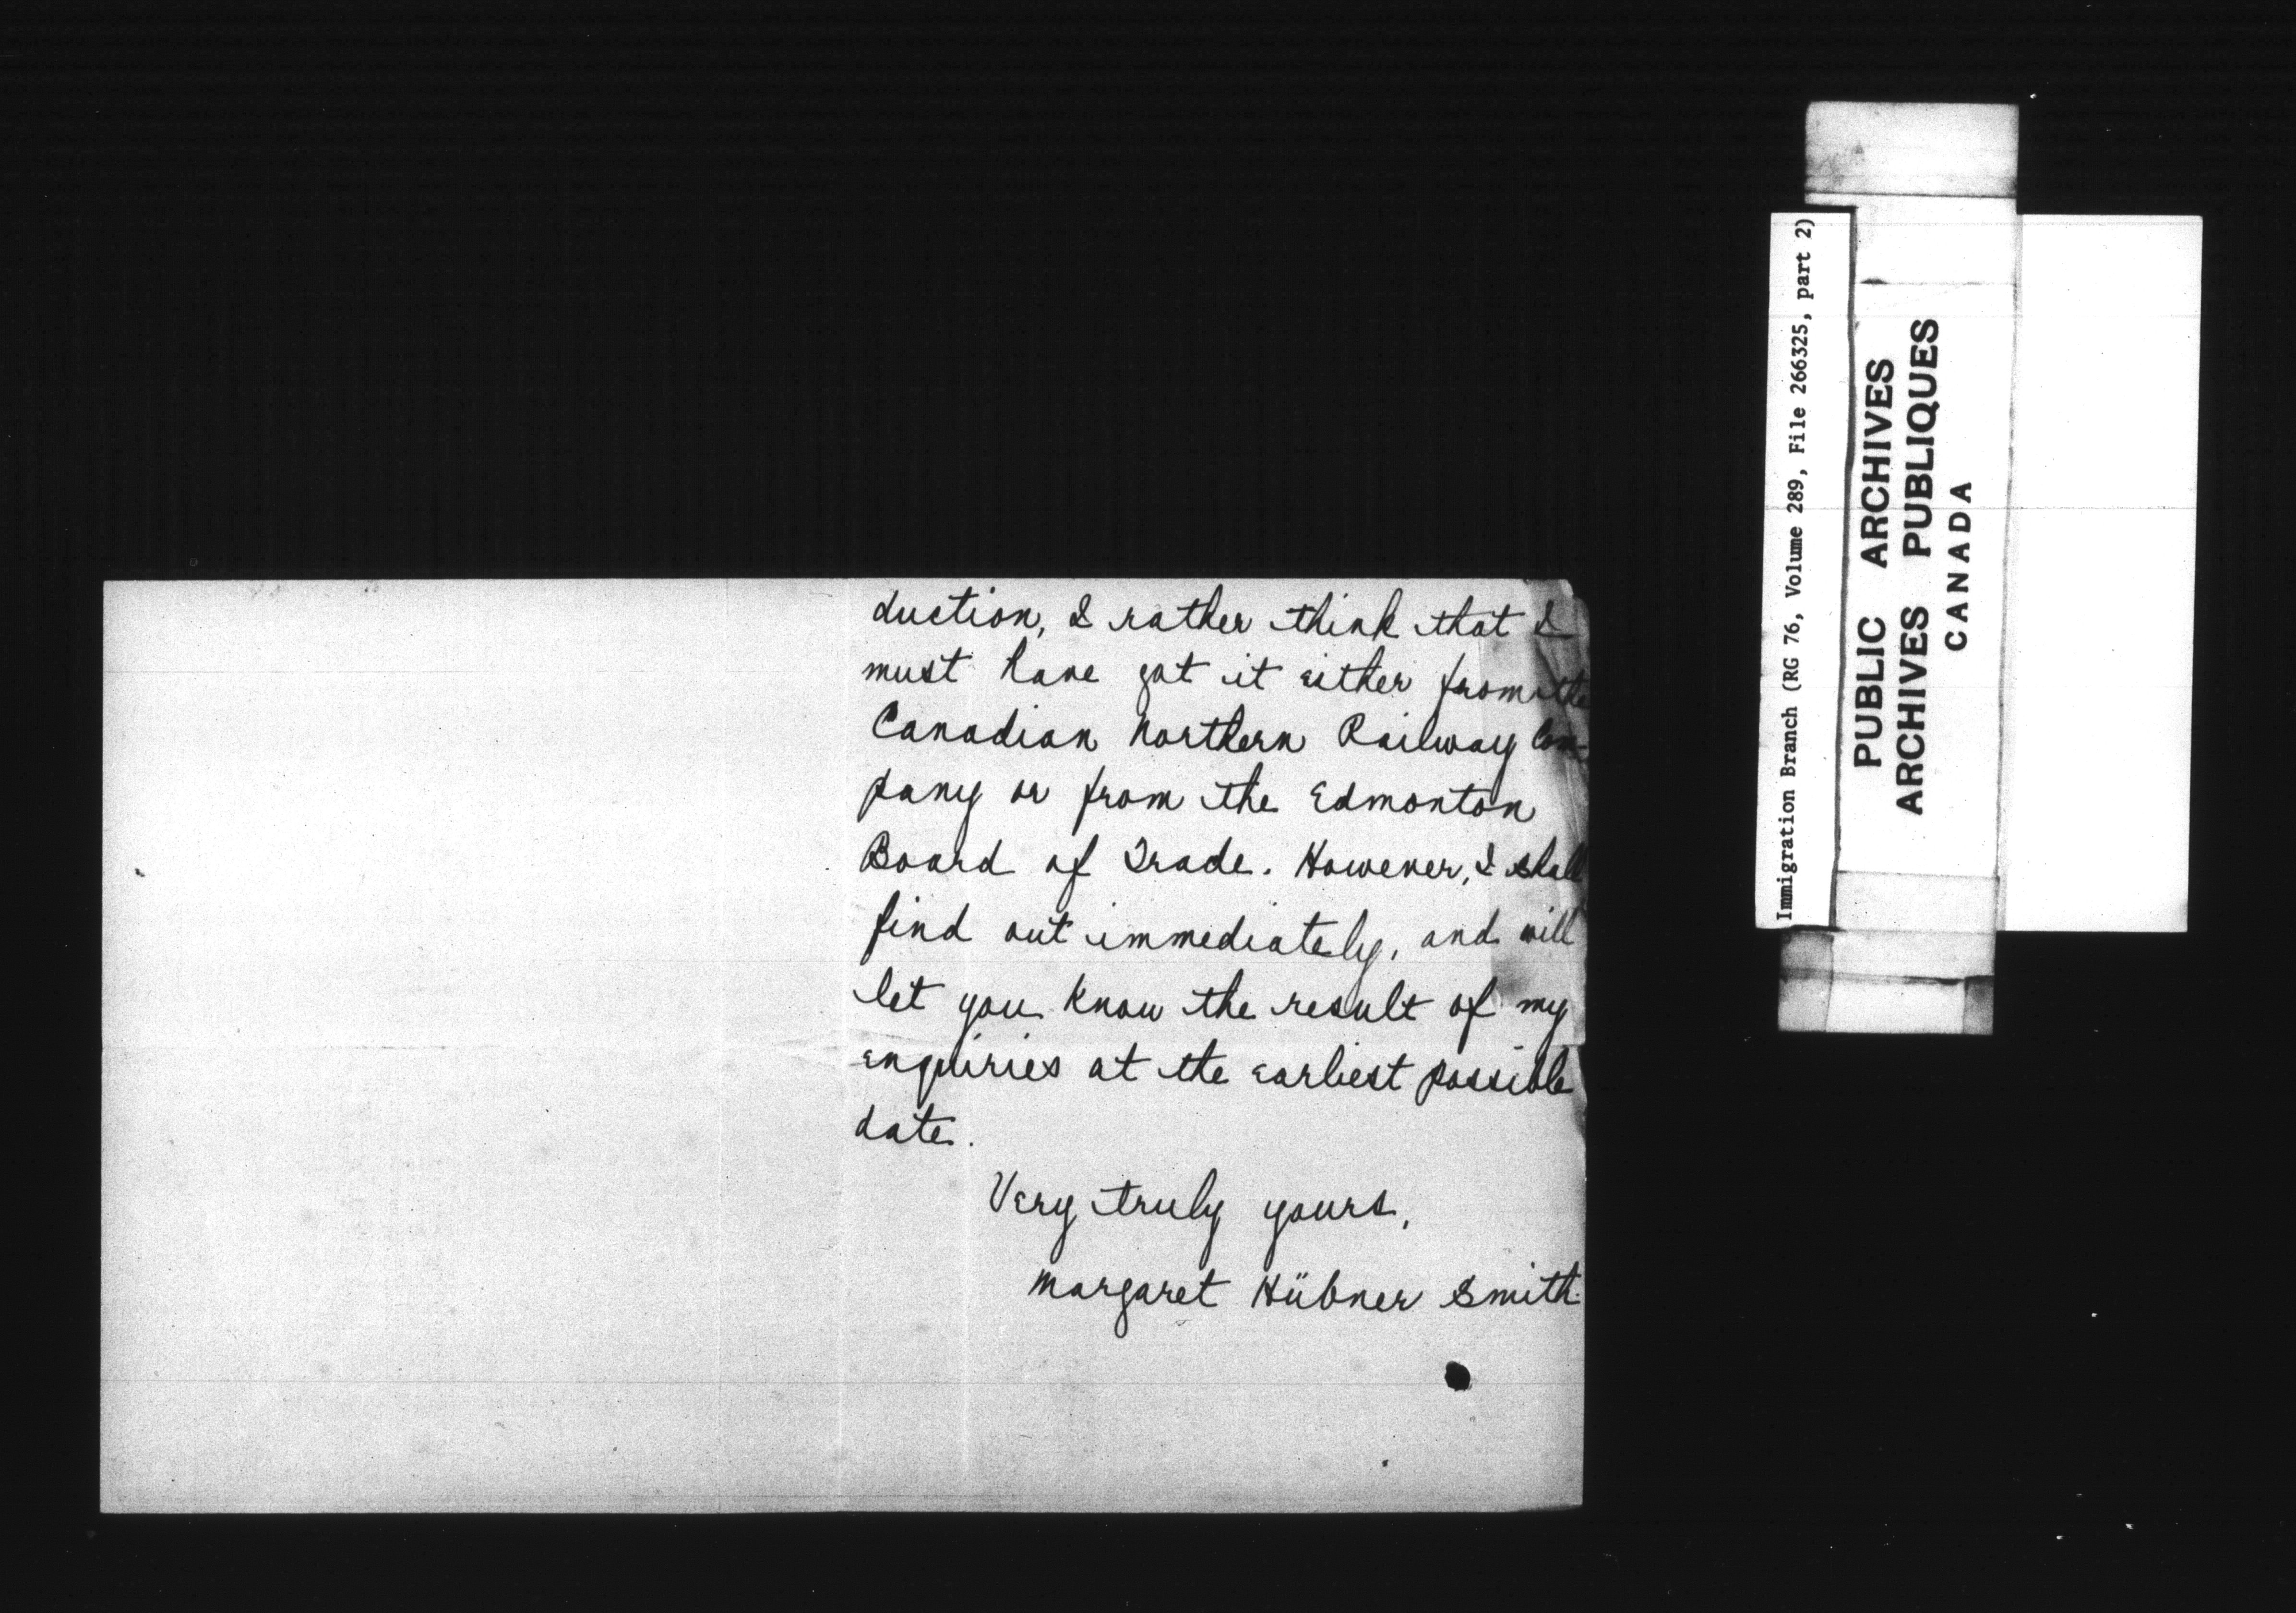 duction, I rather think that I
must have got it either from the
Canadian Northern Railway Com-
pany or from the Edmonton
Board of Trade. However, I shall
find out immediately, and will
let you know the result of my
enquiries at the earliest possible
date.
Very truly yours,
Margaret Hübner Smith.
Immigration Branch (RG 76, Volume 289, File 266325, part 2)
PUBLIC ARCHIVES
ARCHIVES PUBLIQUES
CANADA